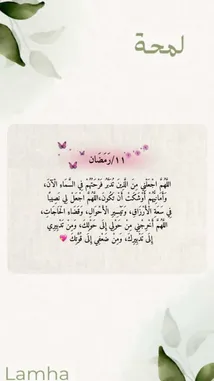 لمحة
١١/رَمَضَان
اللَّهُمَّ اجْعَلْنِي مِنَ الَّذِينَ تُدَبَّرُ فَرْحَتُهُمْ فِي السَّمَاءِ الْآنَ،
وَأَمَانِيهِمْ أَوْشَكَتْ أَنْ تَكُونَ،اللَّهُمَّ اجْعَلْ لِي نَصِيبًا
فِي سَعَةِ الْأَرْزَاقِ، وَتَيْسِيرِ الْأَحْوَالِ، وَقَضَاءِ الْحَاجَاتِ،
اللَّهُمَّ أَخْرِجْنِي مِنْ حَوْلِي إِلَى حَوْلِكَ، وَمِنْ تَدْبِيرِي
إِلَى تَدْبِيرِكَ، وَمِنْ ضَعْفِي إِلَى قُوَّتِكَ
Lamha